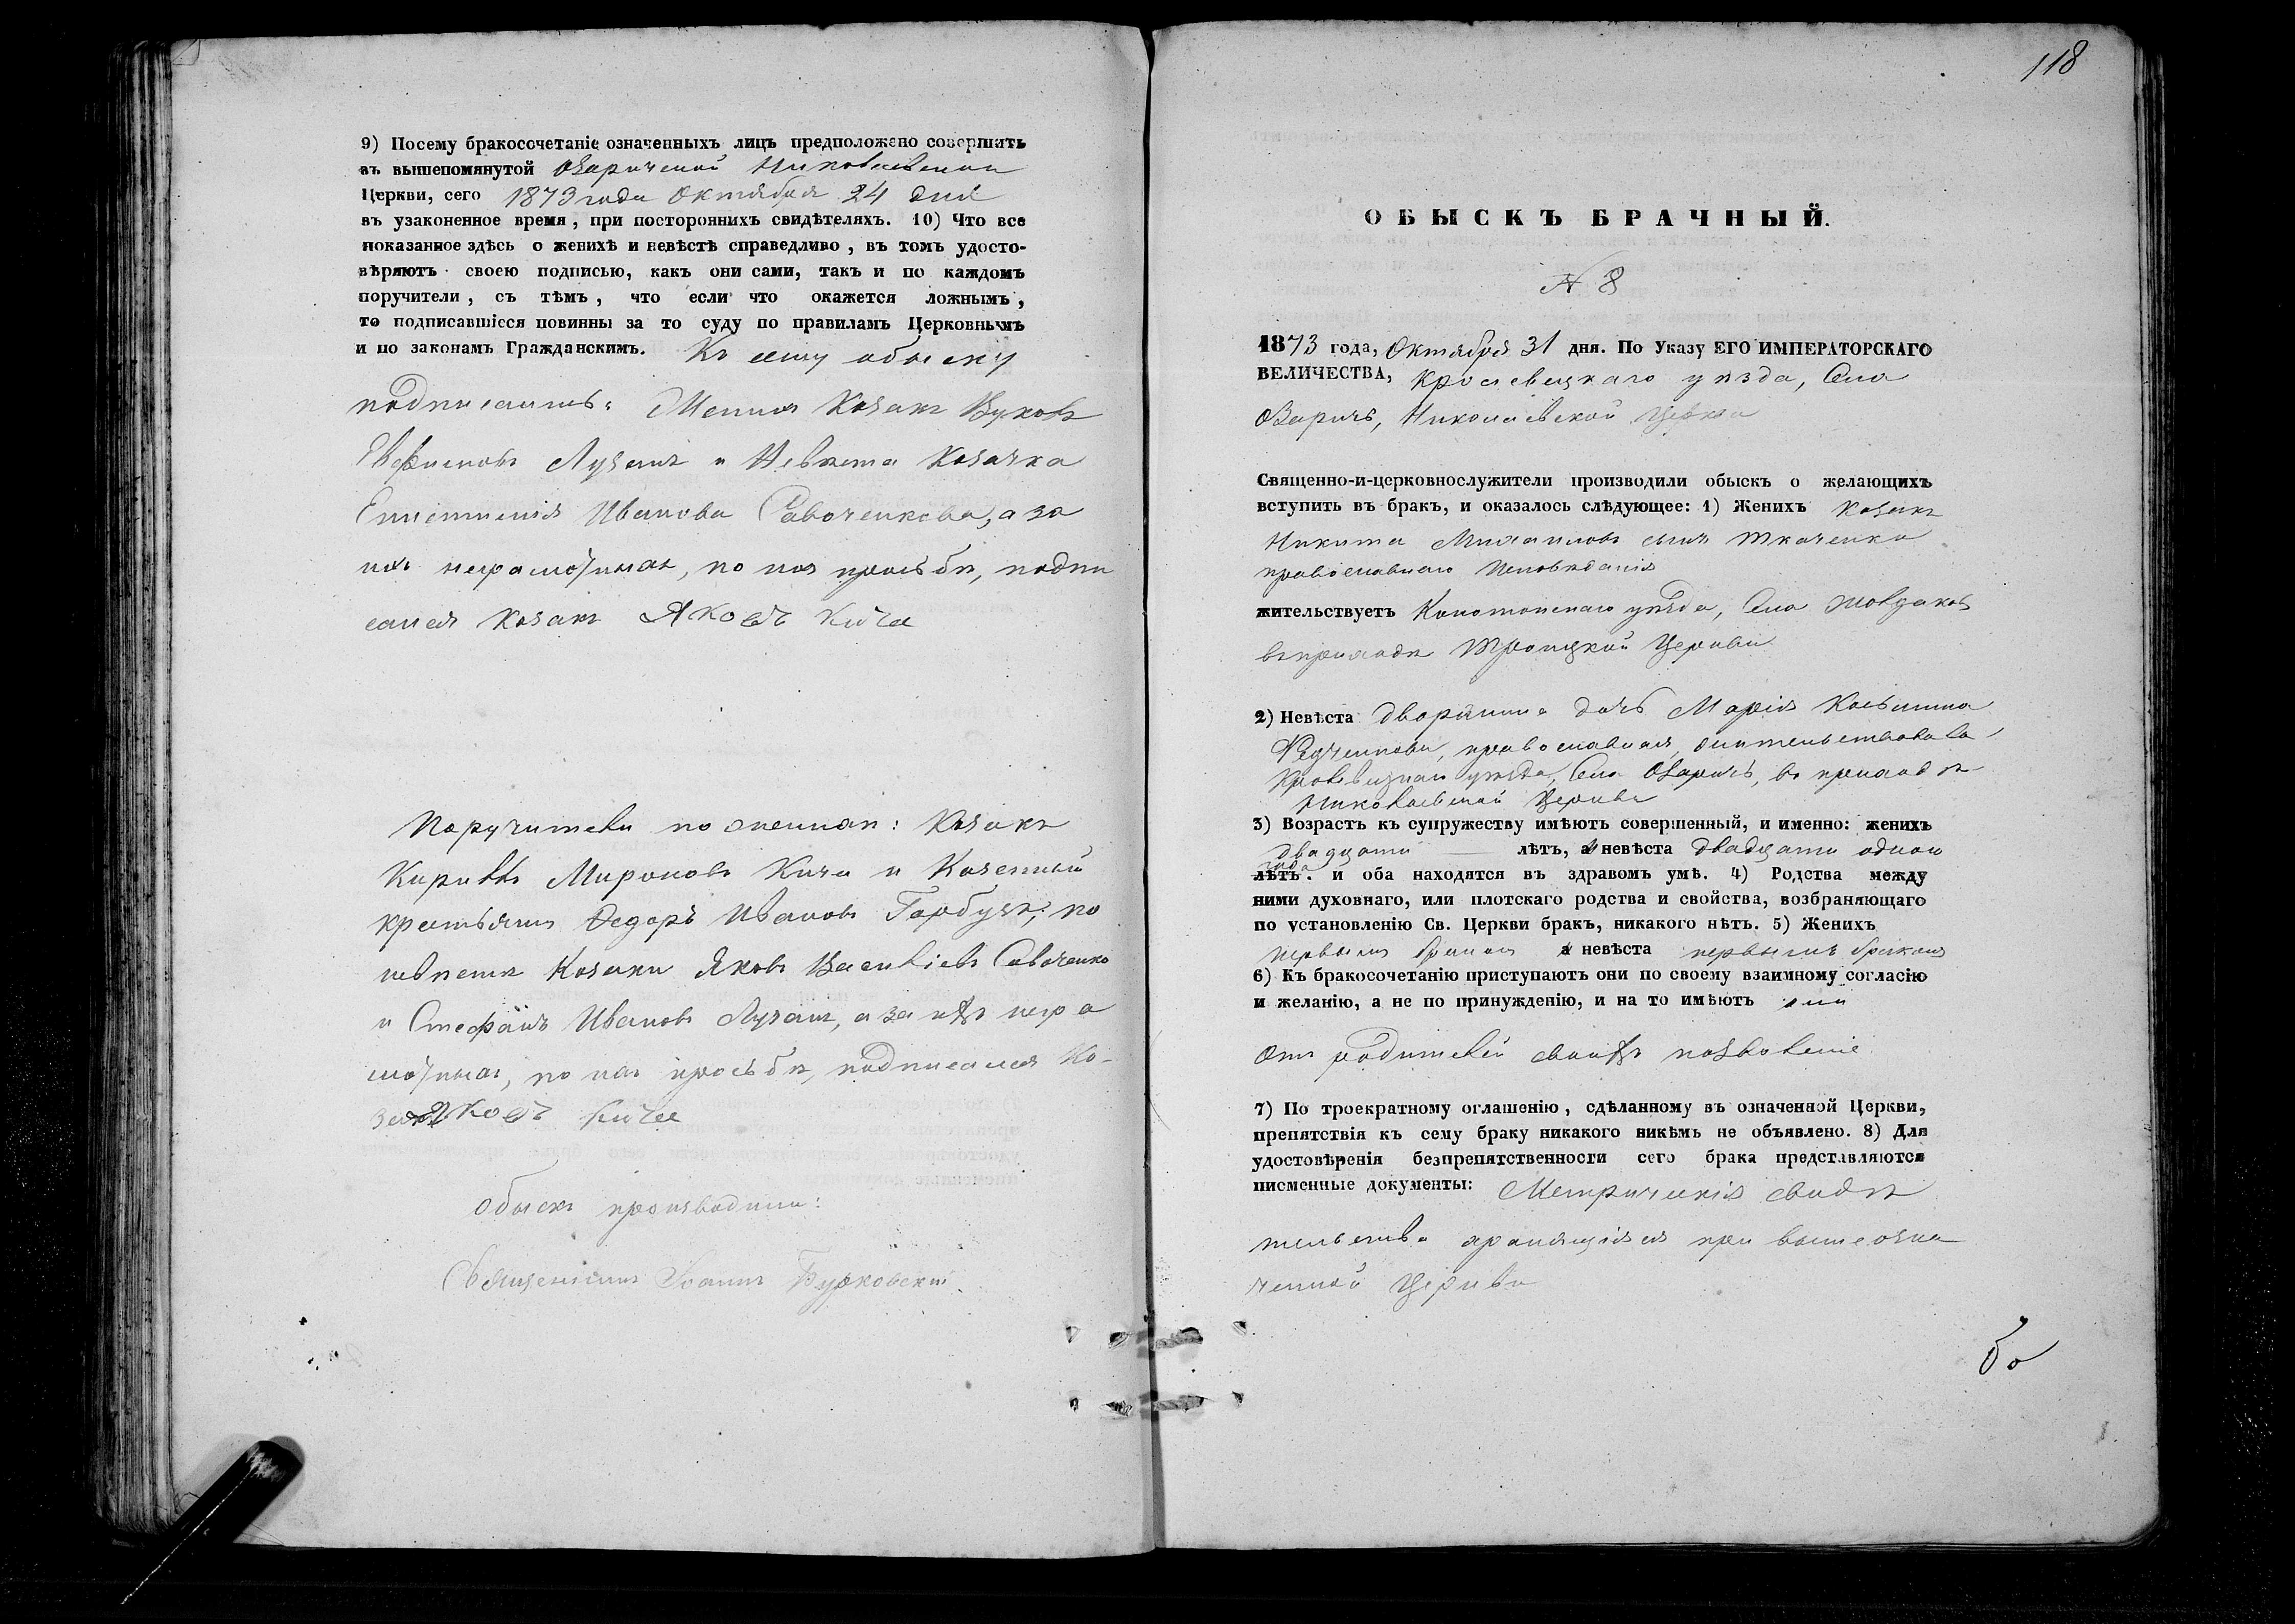 9) Посему бракосочетаніе означенныхъ лицъ предположено совершить
въ вышепомянутой Озаричской Николаевской
Церкви, сего 1873 года Октября 24 дня
въ узаконенное время, при постороннихъ свидѣтеляхъ. 10) Что все
показанное здѣсь о женихѣ и невѣстѣ справедливо, въ томъ удосто-
вѣряютъ своею подписью, какъ они сами, такъ и по каждомъ
поручители, съ тѣмъ, что если что окажется ложнымъ,
то подписавшіеся повинны за то суду по правиламъ Церковнымъ
и по законамъ Гражданскимъ. Къ сему обыску
подписались: Женихъ Козакъ
Евфимовъ Лузанъ и Невѣста Козачка
Епистимія Иванова Савоченкова, а за
ихъ неграмотныхъ, по ихъ просьбѣ, подпи
сался Козакъ Яковъ Кича
Поручители по женихѣ: Козакъ
Кириллъ Мироновъ Кича и Казенный
крестьянин Федоръ Ивановъ Гарбузъ, по
невѣстѣ Козаки Яковъ Василіевъ Савоченко
и Стефанъ Ивановъ Лузанъ, а за ихъ негра
мотныхъ, по ихъ просьбѣ, подписался Ко-
закъ Яковъ Кича
Обыскъ производили:
Священникъ Іоаннъ Бурковскій
118
ОБЫСКЪ БРАЧНЫЙ.
№ 8
1873 года, Октября 31 дня. По Указу ЕГО ИМПЕРАТОРСКАГО
ВЕЛИЧЕСТВА, Кролевецкаго уѣзда, Села
Озаричъ, Николаевской Церкви
Священно-и-церковнослужители производили обыскъ о желающихъ
вступить въ бракъ, и оказалось слѣдующее: 1) Женихъ Козакъ
Никита Михаиловъ сынъ Ткаченко
православнаго Исповѣданія
жительствуетъ Конотопскаго уѣзда, Села
въ приходѣ Троицкой Церкви
2) Невѣста дворянина дочь Марія Косьмина
православная, жительствовала
Кролевецкаго уѣзда, Села Озаричъ, въ приходѣ
Николаевской Церкви
3) Возрастъ къ супружеству имѣютъ совершенный, и именно: женихъ
двадцати лѣтъ, а невѣста двадцати одного
года
лѣтъ. и оба находятся въ здравомъ умѣ. 4) Родства между
ними духовнаго, или плотскаго родства и свойства, возбраняющаго
по установленію Св. Церкви бракъ, никакого нѣтъ. 5) Женихъ
первымъ бракомъ а невѣста первымъ бракомъ
6) Къ бракосочетанію приступаютъ они по своему взаимному согласію
и желанію, а не по принужденію, и на то имѣютъ они
отъ родителей своихъ позволеніе
7) По троекратному оглашенію, сдѣланному въ означенной Церкви,
препятствія къ сему браку никакого никѣмъ не объявлено. 8) Для
удостовѣренія безпрепятственности сего брака представляются
писменные документы: Метрическія свидѣ
тельства хранящіяся при вышеозна
ченной Церкви